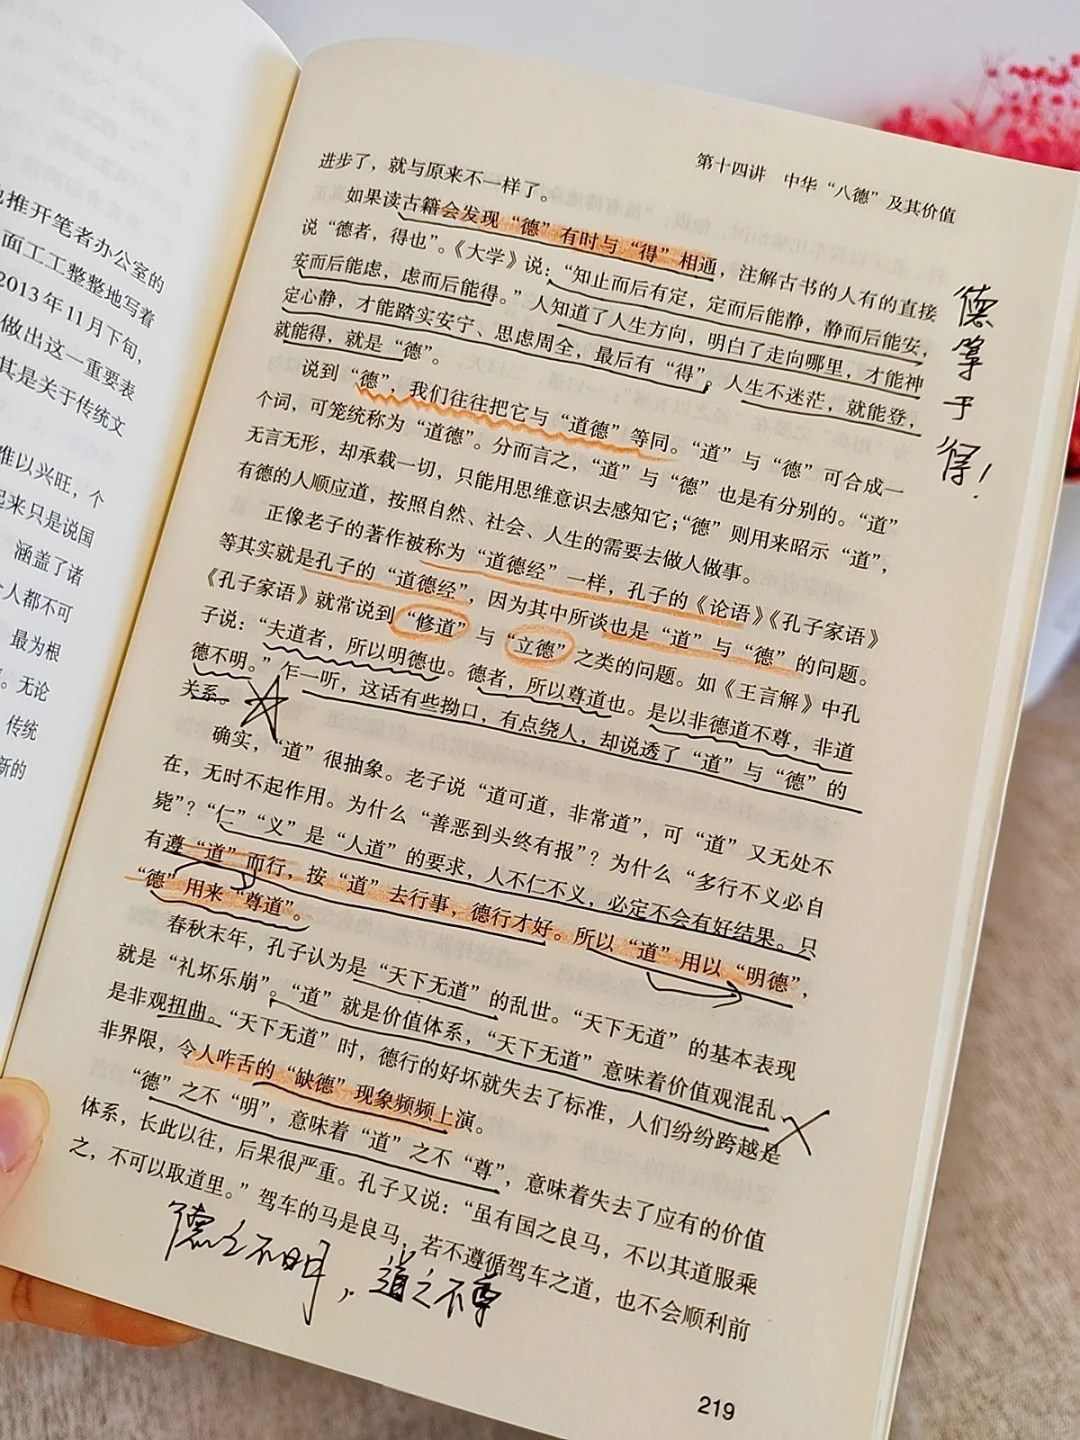 也推开笔者办公室的
面工工整整地写着
2013年11月下旬,
做出这一重要表
其是关于传统文
难以兴旺，个
起来只是说国
涵盖了诸
个人都不可
最为根
。无论
传统
新的
第十四讲 中华“八德”及其价值
进步了，就与原来不一样了。
如果读古籍会发现“德”有时与“得”相通，注解古书的人有的直接
说“德者，得也”。《大学》说：“知止而后有定，定而后能静，静而后能安，
安而后能虑，虑而后能得。”人知道了人生方向，明白了走向哪里，才能神
定心静，才能踏实安宁、思虑周全，最后有“得”。人生不迷茫，就能登，
就能得，就是“德”。
说到“德”，我们往往把它与“道德”等同。“道”与“德”可合成一
个词，可笼统称为“道德”。分而言之，“道”与“德”也是有分别的。“道”
无言无形，却承载一切，只能用思维意识去感知它；“德”则用来昭示“道”，
有德的人顺应道，按照自然、社会、人生的需要去做人做事。
正像老子的著作被称为“道德经”一样，孔子的《论语》《孔子家语》
等其实就是孔子的“道德经”，因为其中所谈也是“道”与“德”的问题。
《孔子家语》就常说到“修道”与“立德”之类的问题。如《王言解》中孔
子说：“夫道者，所以明德也。德者，所以尊道也。是以非德道不尊，非道
德不明。”乍一听，这话有些拗口，有点绕人，却说透了“道”与“德”的
关系。
确实，“道”很抽象。老子说“道可道，非常道”，可“道”又无处不
在，无时不起作用。为什么“善恶到头终有报”？为什么“多行不义必自
毙”？“仁”“义”是“人道”的要求，人不仁不义，必定不会有好结果。只
有遵“道”而行，按“道”去行事，德行才好。所以“道”用以“明德”，
“德”用来“尊道”。
春秋末年，孔子认为是“天下无道”的乱世。“天下无道”的基本表现
就是“礼坏乐崩”。“道”就是价值体系，“天下无道”意味着价值观混乱，
是非观扭曲。“天下无道”时，德行的好坏就失去了标准，人们纷纷跨越是
非界限，令人咋舌的“缺德”现象频频上演。
“德”之不“明”，意味着“道”之不“尊”，意味着失去了应有的价值
体系，长此以往，后果很严重。孔子又说：“虽有国之良马，不以其道服乘
之，不可以取道里。”驾车的马是良马，若不遵循驾车之道，也不会顺利前
德等于得！
德之不明，道之不尊
219